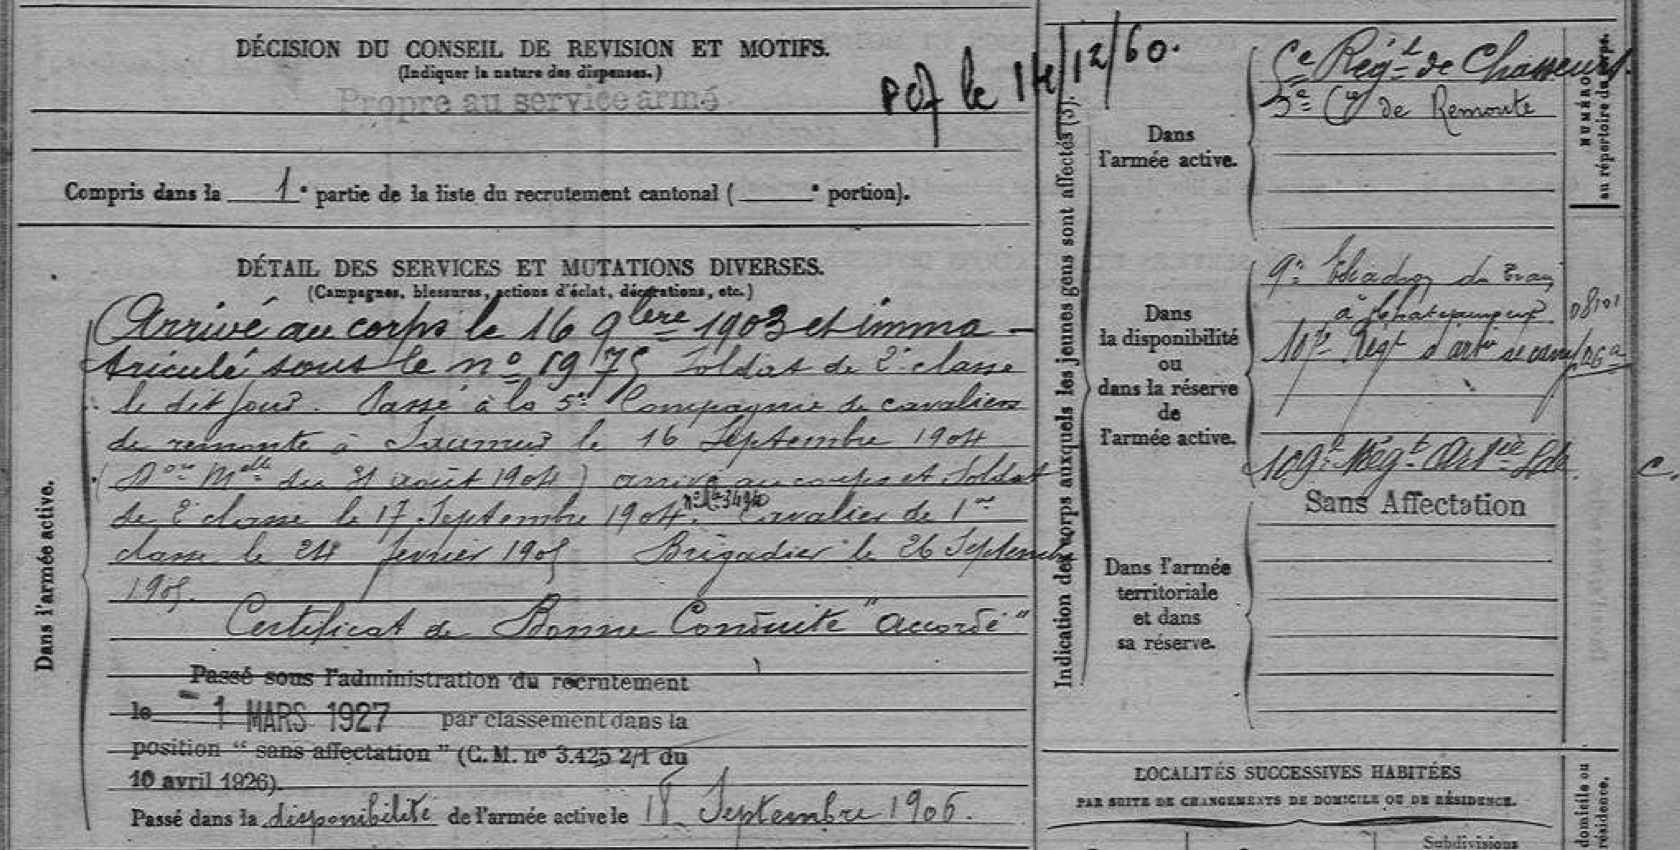 DÉCISION DU CONSEIL DE REVISION ET MOTIFS.
(Indiquer la nature des dispenses.)
Propre au service armé
le 14/12/60.
Compris dans la 1e partie de la liste du recrutement cantonal ( e portion).
DÉTAIL DES SERVICES ET MUTATIONS DIVERSES.
(Campagnes, blessures, actions d'éclat, décorations, etc.)
Dans l'armée active.
Arrivé au corps le 16 9bre 1903 et imma-
triculé sous le no 1975 Soldat de 2e classe
le dit jour. Passé à la 5e Compagnie de cavaliers
de remonte à Saumur le 16 Septembre 1904
(Don Melle du 31 août 1904) arrivé au corps et Soldat
de 2e classe le 17 Septembre 1904. no Mle 3494 Cavalier de 1re
classe le 24 février 1905 Brigadier le 26 Septembre
1905.
Certificat de Bonne Conduite "accordé"
Passé sous l'administration du recrutement
le - 1 MARS 1927 par classement dans la
position "sans affectation" (C.M. no 3.425 2/1 du
10 avril 1926).
Passé dans la disponibilité de l'armée active le 18 Septembre 1906.
Indication des corps auxquels les jeunes gens sont affectés (3).
Dans
l'armée active.
Régt de Chasseurs.
5e Cie de Remonte
NUMÉRO
au répertoire du corps.
Dans
la disponibilité
ou
dans la réserve
de
l'armée active.
9e Escadron du Train
à Chateauroux
Régt d'artie de camp
109e Régt Artrie Lde
C.
Sans Affectation
Dans l'armée
territoriale
et dans
sa réserve.
LOCALITÉS SUCCESSIVES HABITÉES
PAR SUITE DE CHANGEMENTS DE DOMICILE OU DE RÉSIDENCE.
Subdivisions
domicile ou
résidence.